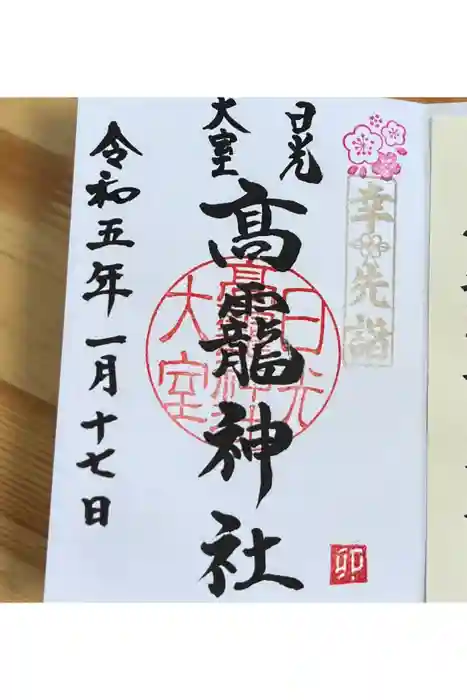 幸先詣
日光
大室
高龗神社
日光
高龗神社
大室
卯
令和五年一月十七日